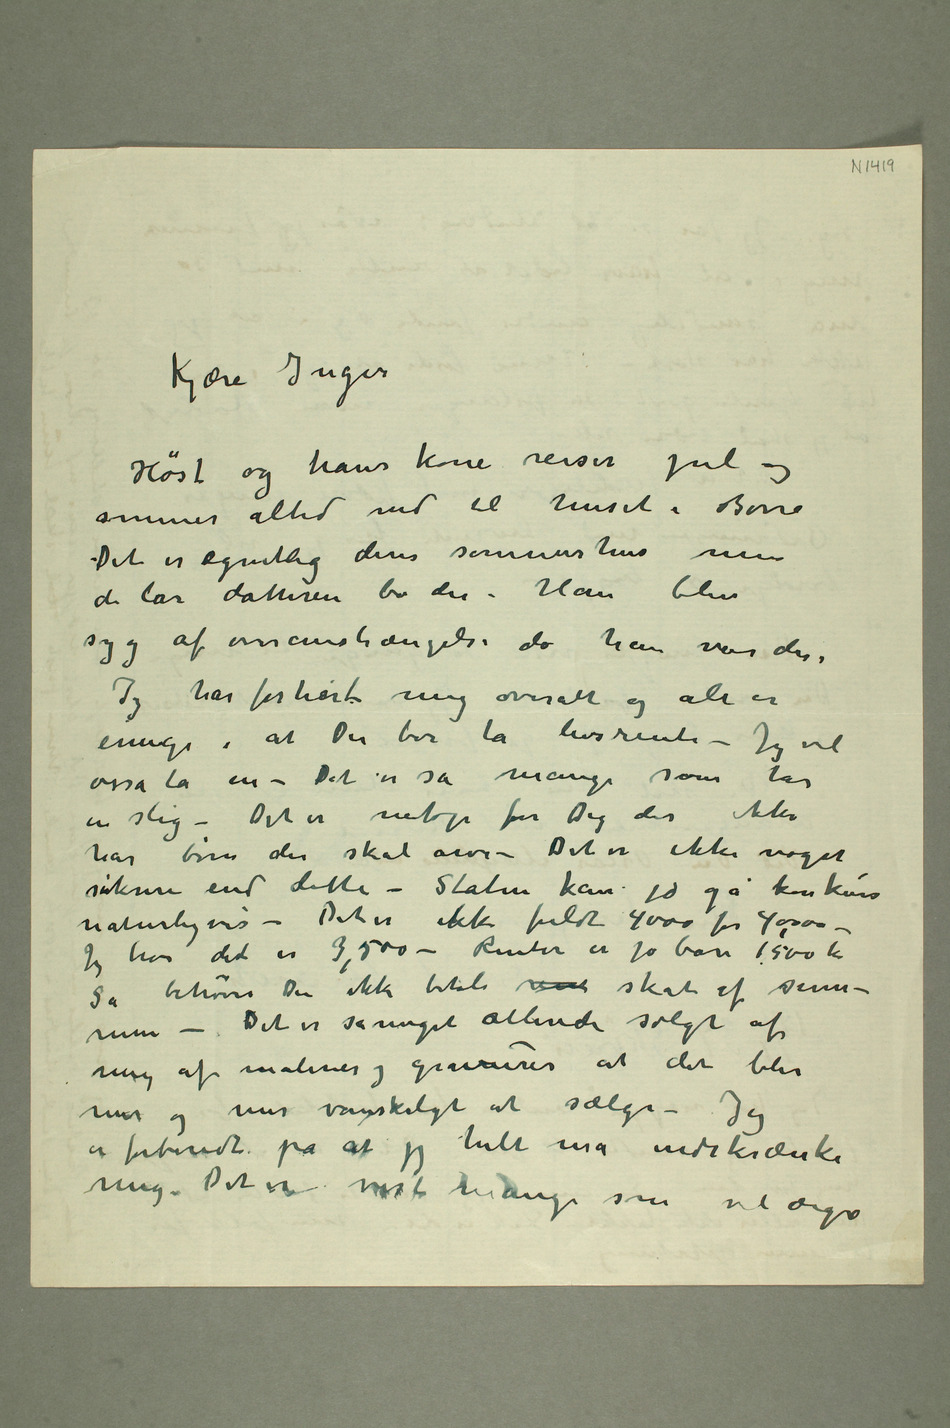 N 1419
Kjære Inger
Höst og hans kone reiser jul og
sommer altid ned til huset i Borre
Det er egentlig deres sommerhus men
de lar datteren bo der. Han blev
syg af overanstrængelse da han var der.
Jeg har forhørt mig overalt og alle er
enige i at Du bør ta livsrente – Jeg vil
også ta en – Det er så mange som tar
en slig – Det er netop for Dig der ikke
har børn der skal arve – Det er ikke noget
sikrere end dette – Staten kan jo gå konkurs
naturligvis – Det er ikke fuldt 4000 for 40,000 –
Jeg tror det er 3,500 – Renter er jo bare 1500 k
Så behøver Du ikke betale skat af sum-
men – Det er så meget allerede solgt af
mig af malerier og gravurer at det blir
mer og mer vanskeligt at sælge – Jeg
er forberedt på at jeg helt må indskrænke
mig. Det er vist mange som vil ærgre